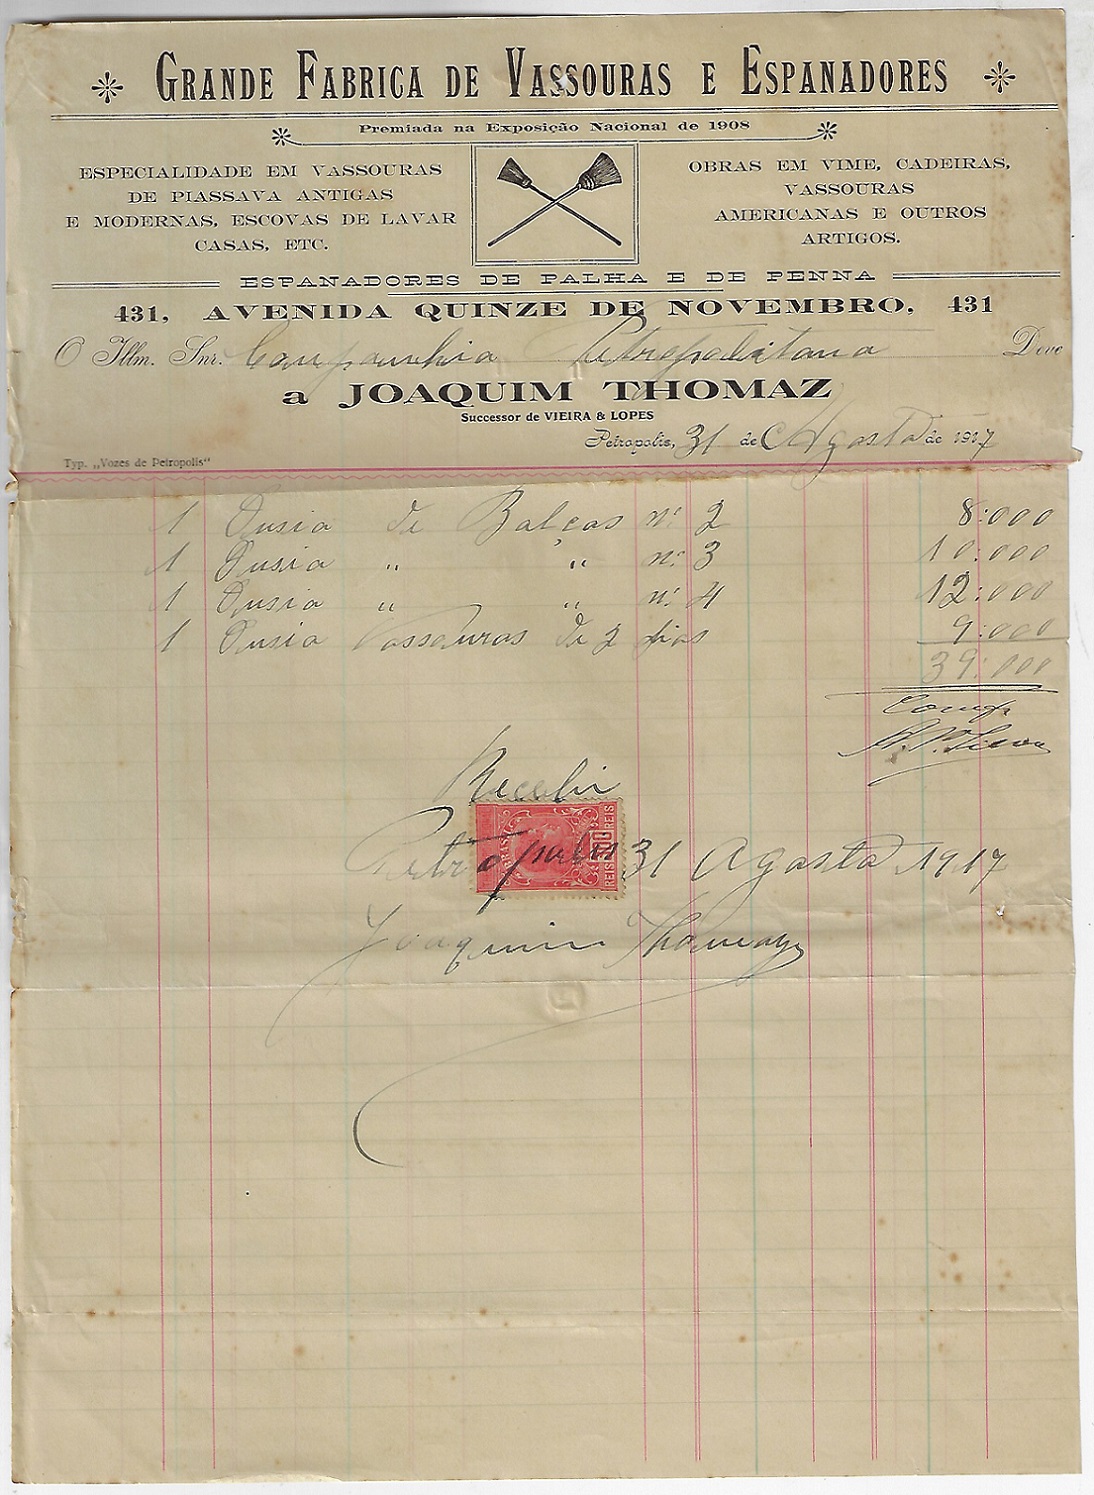 GRANDE FABRICA DE VASSOURAS E ESPANADORES
Premiada na Exposição Nacional de 1908
ESPECIALIDADE EM VASSOURAS
DE PIASSAVA ANTIGAS
E MODERNAS, ESCOVAS DE LAVAR
CASAS, ETC.
OBRAS EM VIME, CADEIRAS,
VASSOURAS
AMERICANAS E OUTROS
ARTIGOS.
ESPANADORES DE PALHA E DE PENNA
431, AVENIDA QUINZE DE NOVEMBRO, 431
O Illm. Snr. Companhia Petropolitana Deve
a JOAQUIM THOMAZ
Successor de VIEIRA & LOPES
Petropolis, 31 de Agosto de 1917
Typ. „Vozes de Petropolis"
1 Dusia de nº 2 8:000
1 Dusia " " nº 3 10:000
1 Dusia " " nº 4 12:000
1 Dusia Vassouras de 2 9:000
39:000
Recebi
Petropolis 31 Agosto 1917
BRASIL
REIS REIS
Joaquim Thomaz